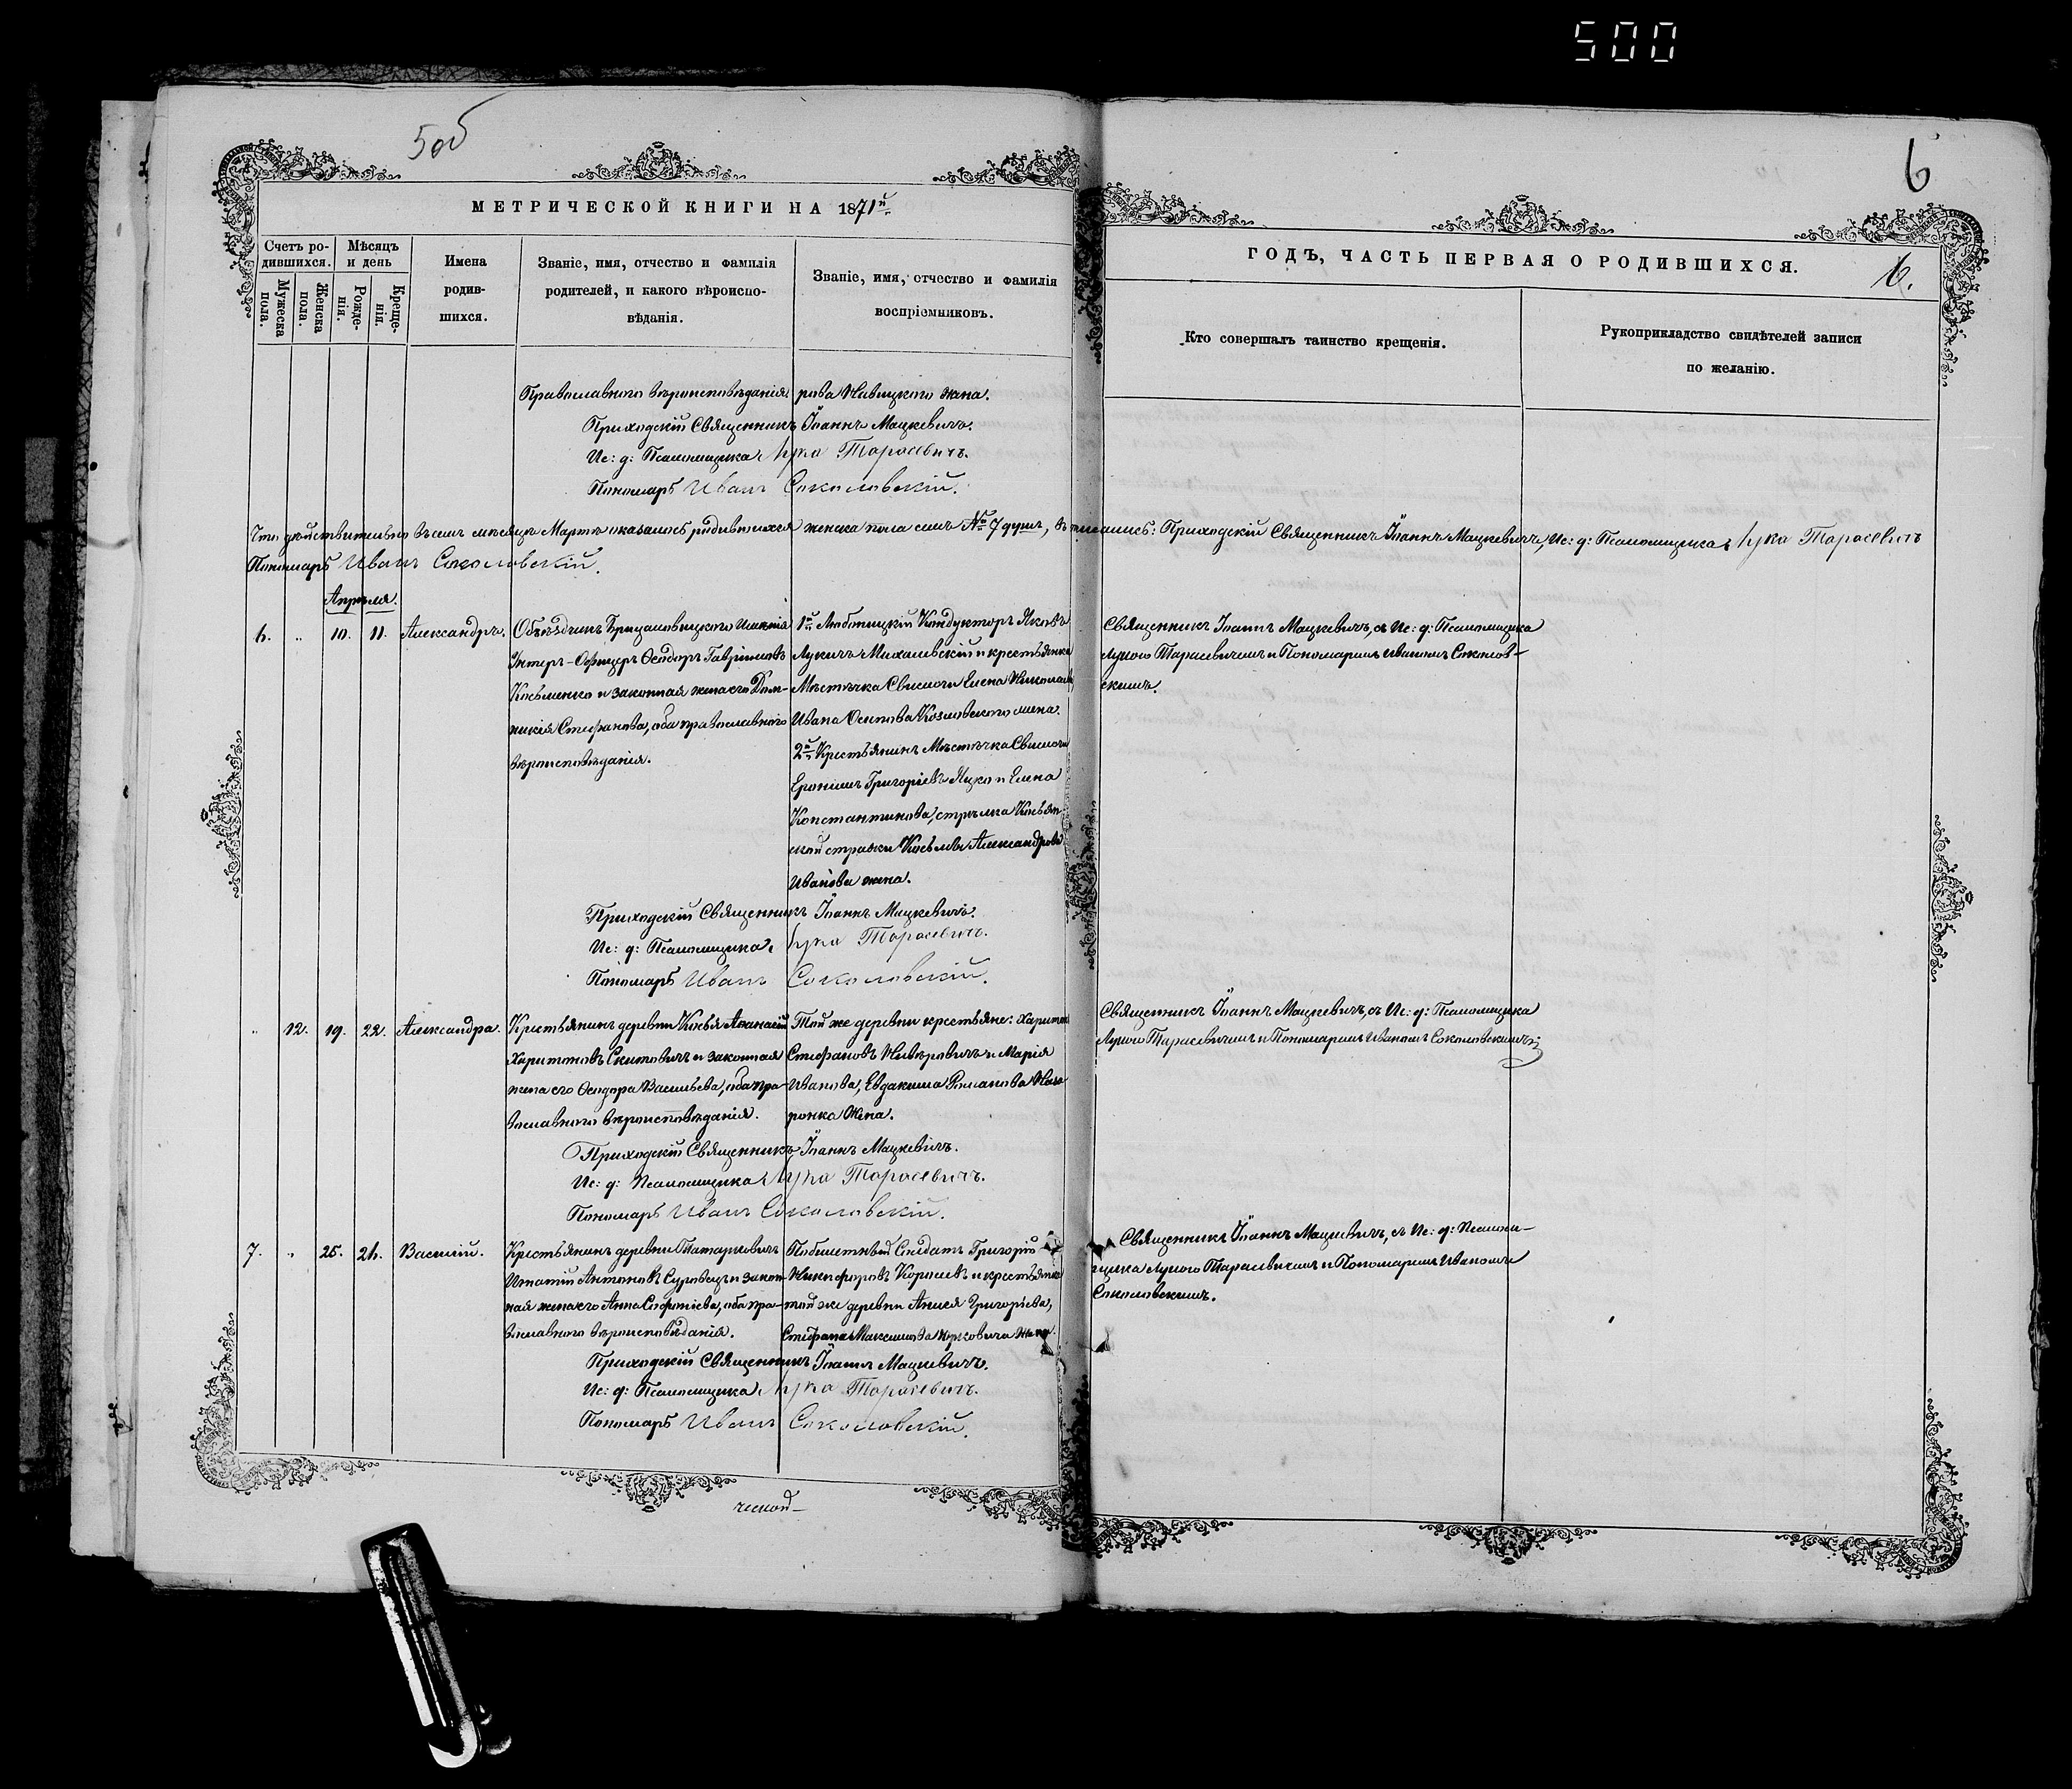 500
50б
6
МЕТРИЧЕСКОЙ КНИГИ НА 1871й
ГОДЪ, ЧАСТЬ ПЕРВАЯ О РОДИВШИХСЯ.
6.
Счетъ ро-
дившихся.
Мужеска пола.
Женска пола.
Мѣсяцъ
и день
Рожде-
нія.
Креще-
нія.
Имена
родив-
шихся.
Званіе, имя, отчество и фамилія
родителей, и какого вѣроиспо-
вѣданія.
Званіе, имя, отчество и фамилія
воспріемниковъ.
Кто совершалъ таинство крещенія.
Рукоприкладство свидѣтелей записи
по желанію.
Православнаго вѣроисповѣданія рова жена.
Приходскій Священникъ Іоаннъ Мацкевичъ.
Ис: д: Псаломщика Лука Тарасевичъ.
Пономарь Иванъ Соколовскій.
Что дѣйствительно въ семъ мѣсяцѣ Мартѣ оказалось родившихся женска пола семь № 7 душъ, въ томъ Приходскій Священникъ Іоаннъ Мацкевичъ, Ис: д: Псаломщика Лука Тарасевичъ
Пономарь Иванъ Соколовскій.
Апрѣля.
6. „ 10. 11. Александръ.
Объѣздчикъ
Унтеръ-Офицеръ Ѳеодоръ Гавріиловъ
Косьменко и законная жена его Дом-
никія Стефанова, оба православнаго
вѣроисповѣданія.
1й Кондукторъ Яковъ
Лукичъ Михальскій и крестьянка
Мѣстечка Свислочи Елена
Ивана Осипова Козловскаго жена.
2й Крестьянинъ Мѣстечка Свислочи
Еронимъ Григоріевъ Яцко и Елена
Константинова, стрѣлка
стражи Косьмы Александрова
Иванова жена.
Священникъ Іоаннъ Мацкевичъ, съ Ис: д: Псаломщика
Лукою Тарасевичемъ и Пономаремъ Иваномъ Соколов-
скимъ.
Приходскій Священникъ Іоаннъ Мацкевичъ.
Ис: д: Псаломщика Лука Тарасевичъ.
Пономарь Иванъ Соколовскій.
„ 12. 19. 22. Александра.
Крестьянинъ деревни Аѳанасій
Харитоновъ и законная
жена его Ѳеодора Васильева, оба пра-
вославнаго вѣроисповѣданія.
Той же деревни крестьяне: Харитонъ
Стефановъ и Марія
Иванова, Евдакима Романова
ронка жена.
Священникъ Іоаннъ Мацкевичъ, съ Ис: д: Псаломщика
Лукою Тарасевичемъ и Пономаремъ Иваномъ Соколовскимъ.
Приходскій Священникъ Іоаннъ Мацкевичъ.
Ис: д: Псаломщика Лука Тарасевичъ.
Пономарь Иванъ Соколовскій.
7. „ 25. 26. Василій.
Крестьянинъ деревни Татарковичъ
Игнатій Антоновъ Суровецъ и закон-
ная жена его Анна, оба пра-
вославнаго вѣроисповѣданія.
Солдатъ Григорій
Никифоровъ Королевъ и крестьянка
той же деревни Григорьева,
Стефана Максимова жена.
Священникъ Іоаннъ Мацкевичъ, съ Ис: д: Псалом-
щика Лукою Тарасевичемъ и Пономаремъ Иваномъ
Соколовскимъ.
Приходскій Священникъ Іоаннъ Мацкевичъ.
Ис: д: Псаломщика Лука Тарасевичъ.
Пономарь Иванъ Соколовскій.